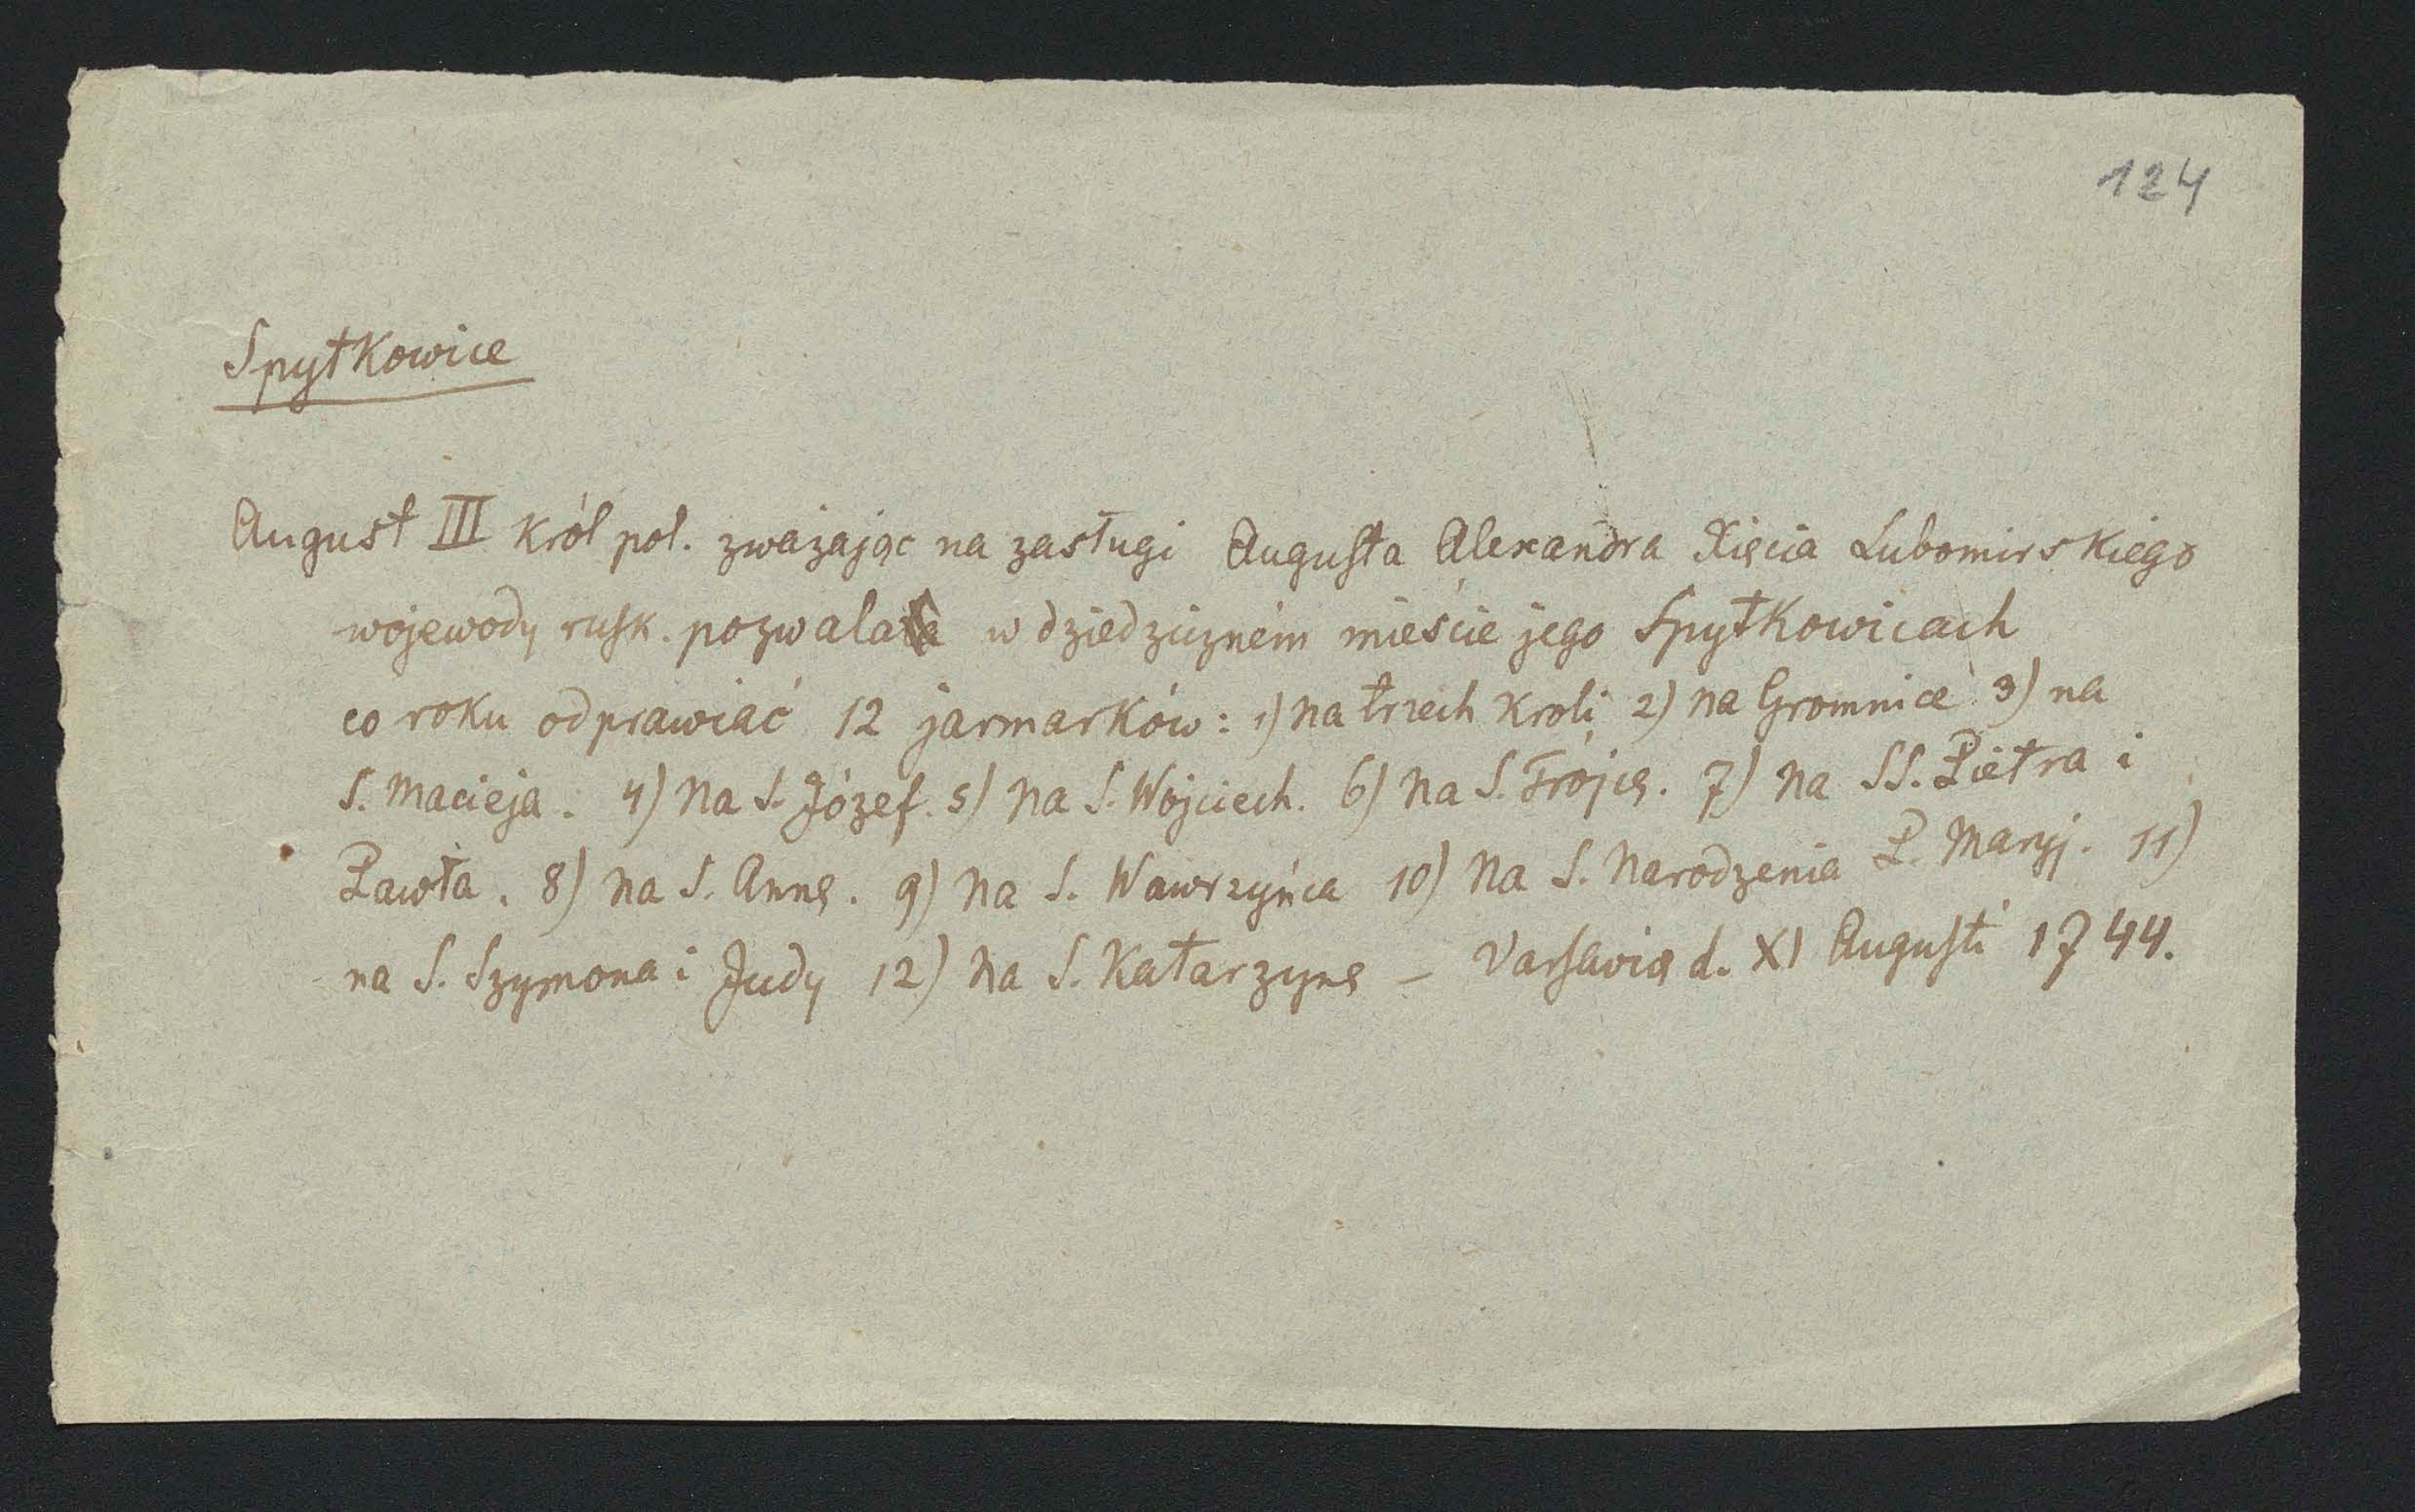 124
Spytkowice
August III król pol. zważając na zasługi Augusta Alexandra Xięcia Lubomirskiego
wojewody rusk. pozwala w dziedziczném mieście jego Spytkowicach
co roku odprawiać 12 jarmarków: 1) na trzech Kroli 2) na Gromnice 3) na
S. Macieja. 4) na S. Józef. 5) na S. Wojciech. 6) na S. Trójcę. 7) na SS. Pietra i
Pawła. 8) na S. Annę. 9) na S. Wawrzyńca 10) na S. Narodzenia P. Maryj. 11)
na S. Szymona i Judy 12) na S. Katarzynę – Varsavię d. XI Augusti 1744.